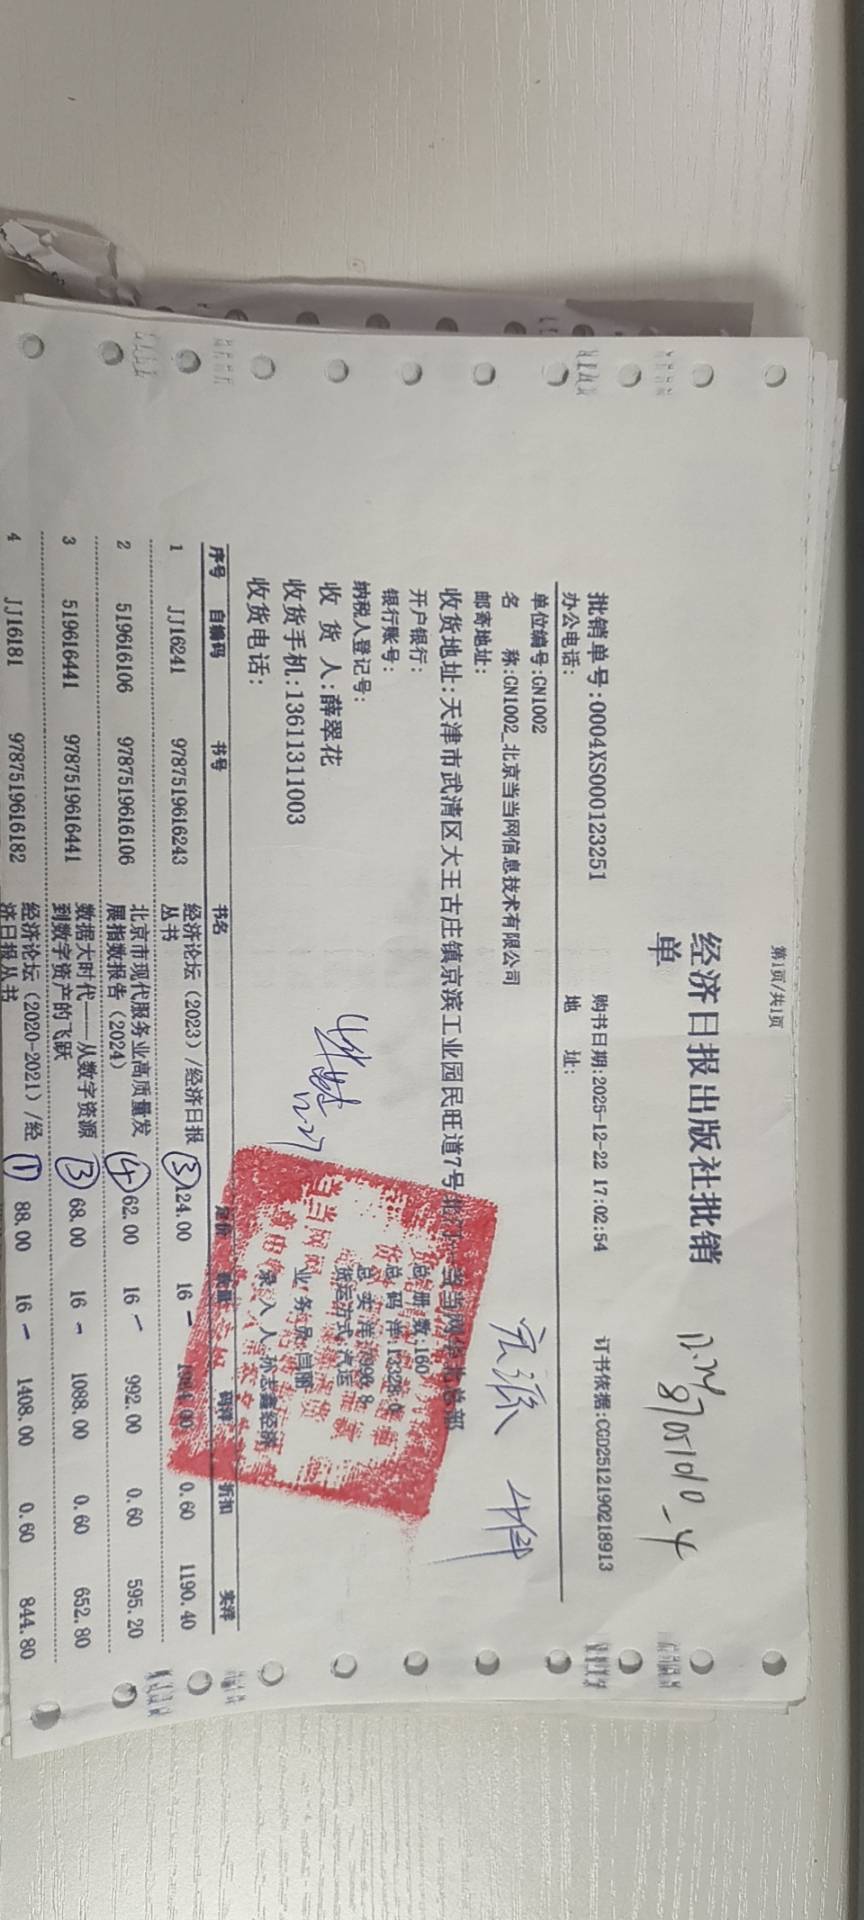 第1页/共1页
经济日报出版社批销
单
批销单号:0004XS000123251 购书日期:2025-12-22 17:02:54 订书依据:CGD2512190218913
办公电话: 地 址:
单位编号:GN1002
名 称:GN1002_北京当当网信息技术有限公司
邮寄地址:
收货地址:天津市武清区大王古庄镇京滨工业园民旺道7号北门 当当网华北总部
开户银行: 总 册 数:160
银行账号: 总 码 洋:13328.0
纳税人登记号: 总 实 洋:7996.8
收 货 人:薛翠花 货运方式:汽运
收货手机:13611311003 业 务 员:闫丽
收货电话: 录 入 人:孙志鑫经济
序号 自编码 书号 书名 定价 数量 码洋 折扣 实洋
1 JJ16241 9787519616243 经济论坛（2023）/经济日报 ③ 124.00 16 1984.00 0.60 1190.40
丛书
2 519616106 9787519616106 北京市现代服务业高质量发 ④ 62.00 16 992.00 0.60 595.20
展指数报告（2024）
3 519616441 9787519616441 数据大时代——从数字资源 ③ 68.00 16 1088.00 0.60 652.80
到数字资产的飞跃
4 JJ16181 9787519616182 经济论坛（2020-2021）/经 ① 88.00 16 1408.00 0.60 844.80
济日报丛书